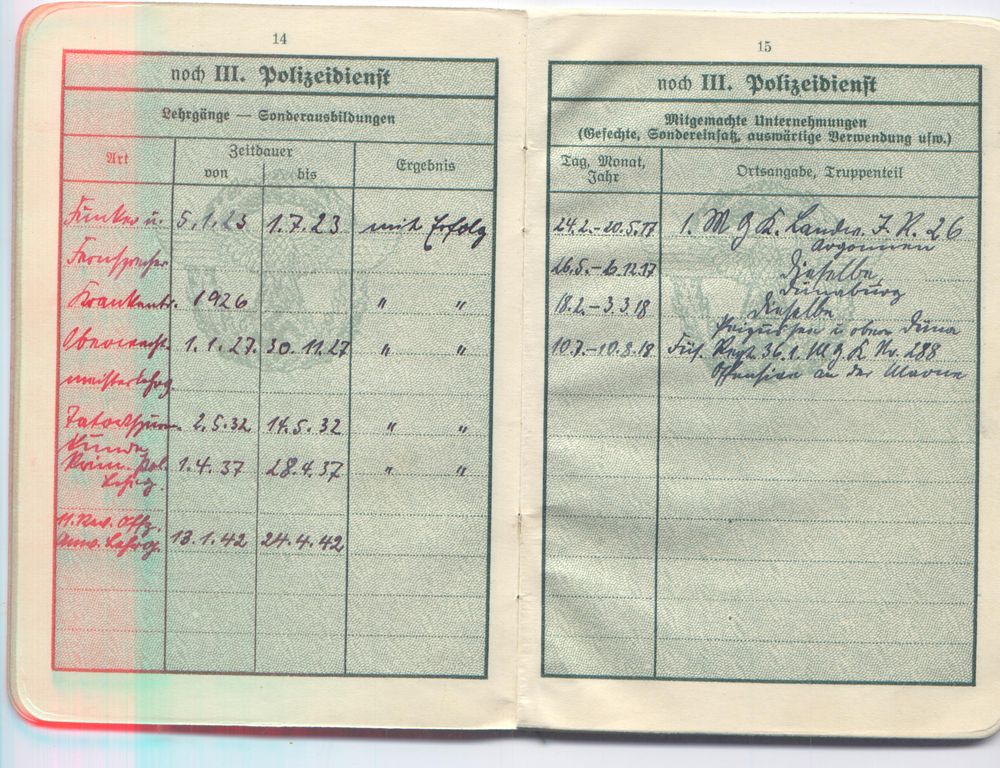 14
noch III. Polizeidienst
Lehrgänge — Sonderausbildungen
Art
Zeitdauer
von
bis
Ergebnis
Funker u. 5.1.23 1.7.23 mit Erfolg
Fernsprecher
Krankentr. 1926 " "
Oberwacht- 1.1.27. 30.11.27 " "
meisterlehrg.
2.5.32 14.5.32 " "
kunde
Krim. Pol. 1.4.37 28.4.37 " "
Lehrg.
Res. Offz.
Anw. Lehrg. 13.1.42 24.4.42
15
noch III. Polizeidienst
Mitgemachte Unternehmungen
(Gefechte, Sondereinsatz, auswärtige Verwendung usw.)
Tag, Monat,
Jahr
Ortsangabe, Truppenteil
24.2.-20.5.17 1. M G K. Landw. J. R. 26
Argonnen
26.5.-6.12.17 Dieselbe
Dünaburg
18.2.-3.3.18 Dieselbe
u ober Düna
10.7.-10.8.18 Füs. Regt. 36. 1. M G K Nr. 288
Offensive an der Marne